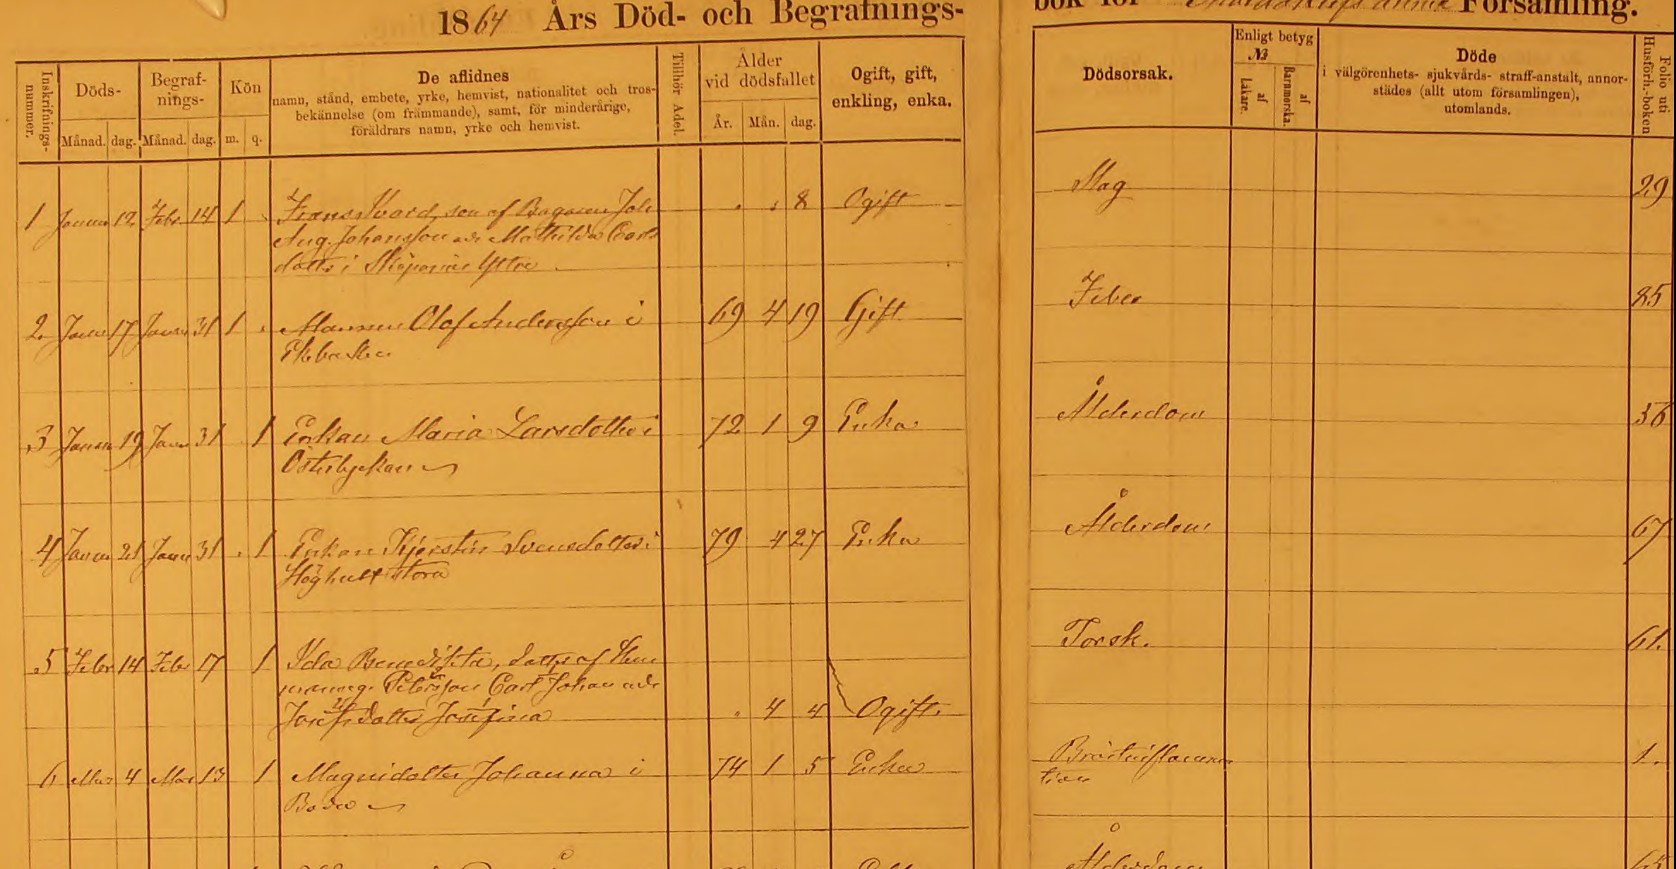 1864 Års Död- och Begrafnings-
bok för Församling.
Inskrifnings-
nummer.
Döds-
Månad. dag.
Begraf-
nings-
Månad. dag.
Kön
m. q.
De aflidnes
namn, stånd, embete, yrke, hemvist, nationalitet och tros-
bekännelse (om främmande), samt, för minderårige,
föräldrars namn, yrke och hemvist.
Tillhör Adel.
Ålder
vid dödsfallet
År. Mån. dag.
Ogift, gift,
enkling, enka.
Dödsorsak.
Enligt betyg
№
af
Läkare.
af
Barnmorska.
Döde
i välgörenhets- sjukvårds- straff-anstalt, annor-
städes (allt utom församlingen),
utomlands.
Folio uti
Husförh.-boken
1 Janua 12 Febr 14 1 Frans Ivard, son af Joh 8 Ogift Slag 29
Aug. Johansson och Mathilda Carls
dotter i Ystra
2 Janua 17 Janua 31 1 Mannen Olof Andersson i 69 4 19 Gift Feber 85
Ekbacken
3 Janua 19 Janua 31 1 Enkan Maria Larsdotter i 72 1 9 Enka Ålderdom 56
4 Janua 21 Janua 31 1 Enkan Kjerstin Svensdotter i 79 4 27 Enka Ålderdom 67
Höghult stora
5 Febr 14 Febr 17 1 Ida Benedikta, dotter af Hem
manseg. Petersson Carl Johan och Torsk. 61.
Josefsdotter Josefina 4 4 Ogift.
6 Mar 4 Mar 13 1 Magnidotter Johanna i 74 1 5 Enka Bröstinflamma 1.
tion
Ålderdom 65